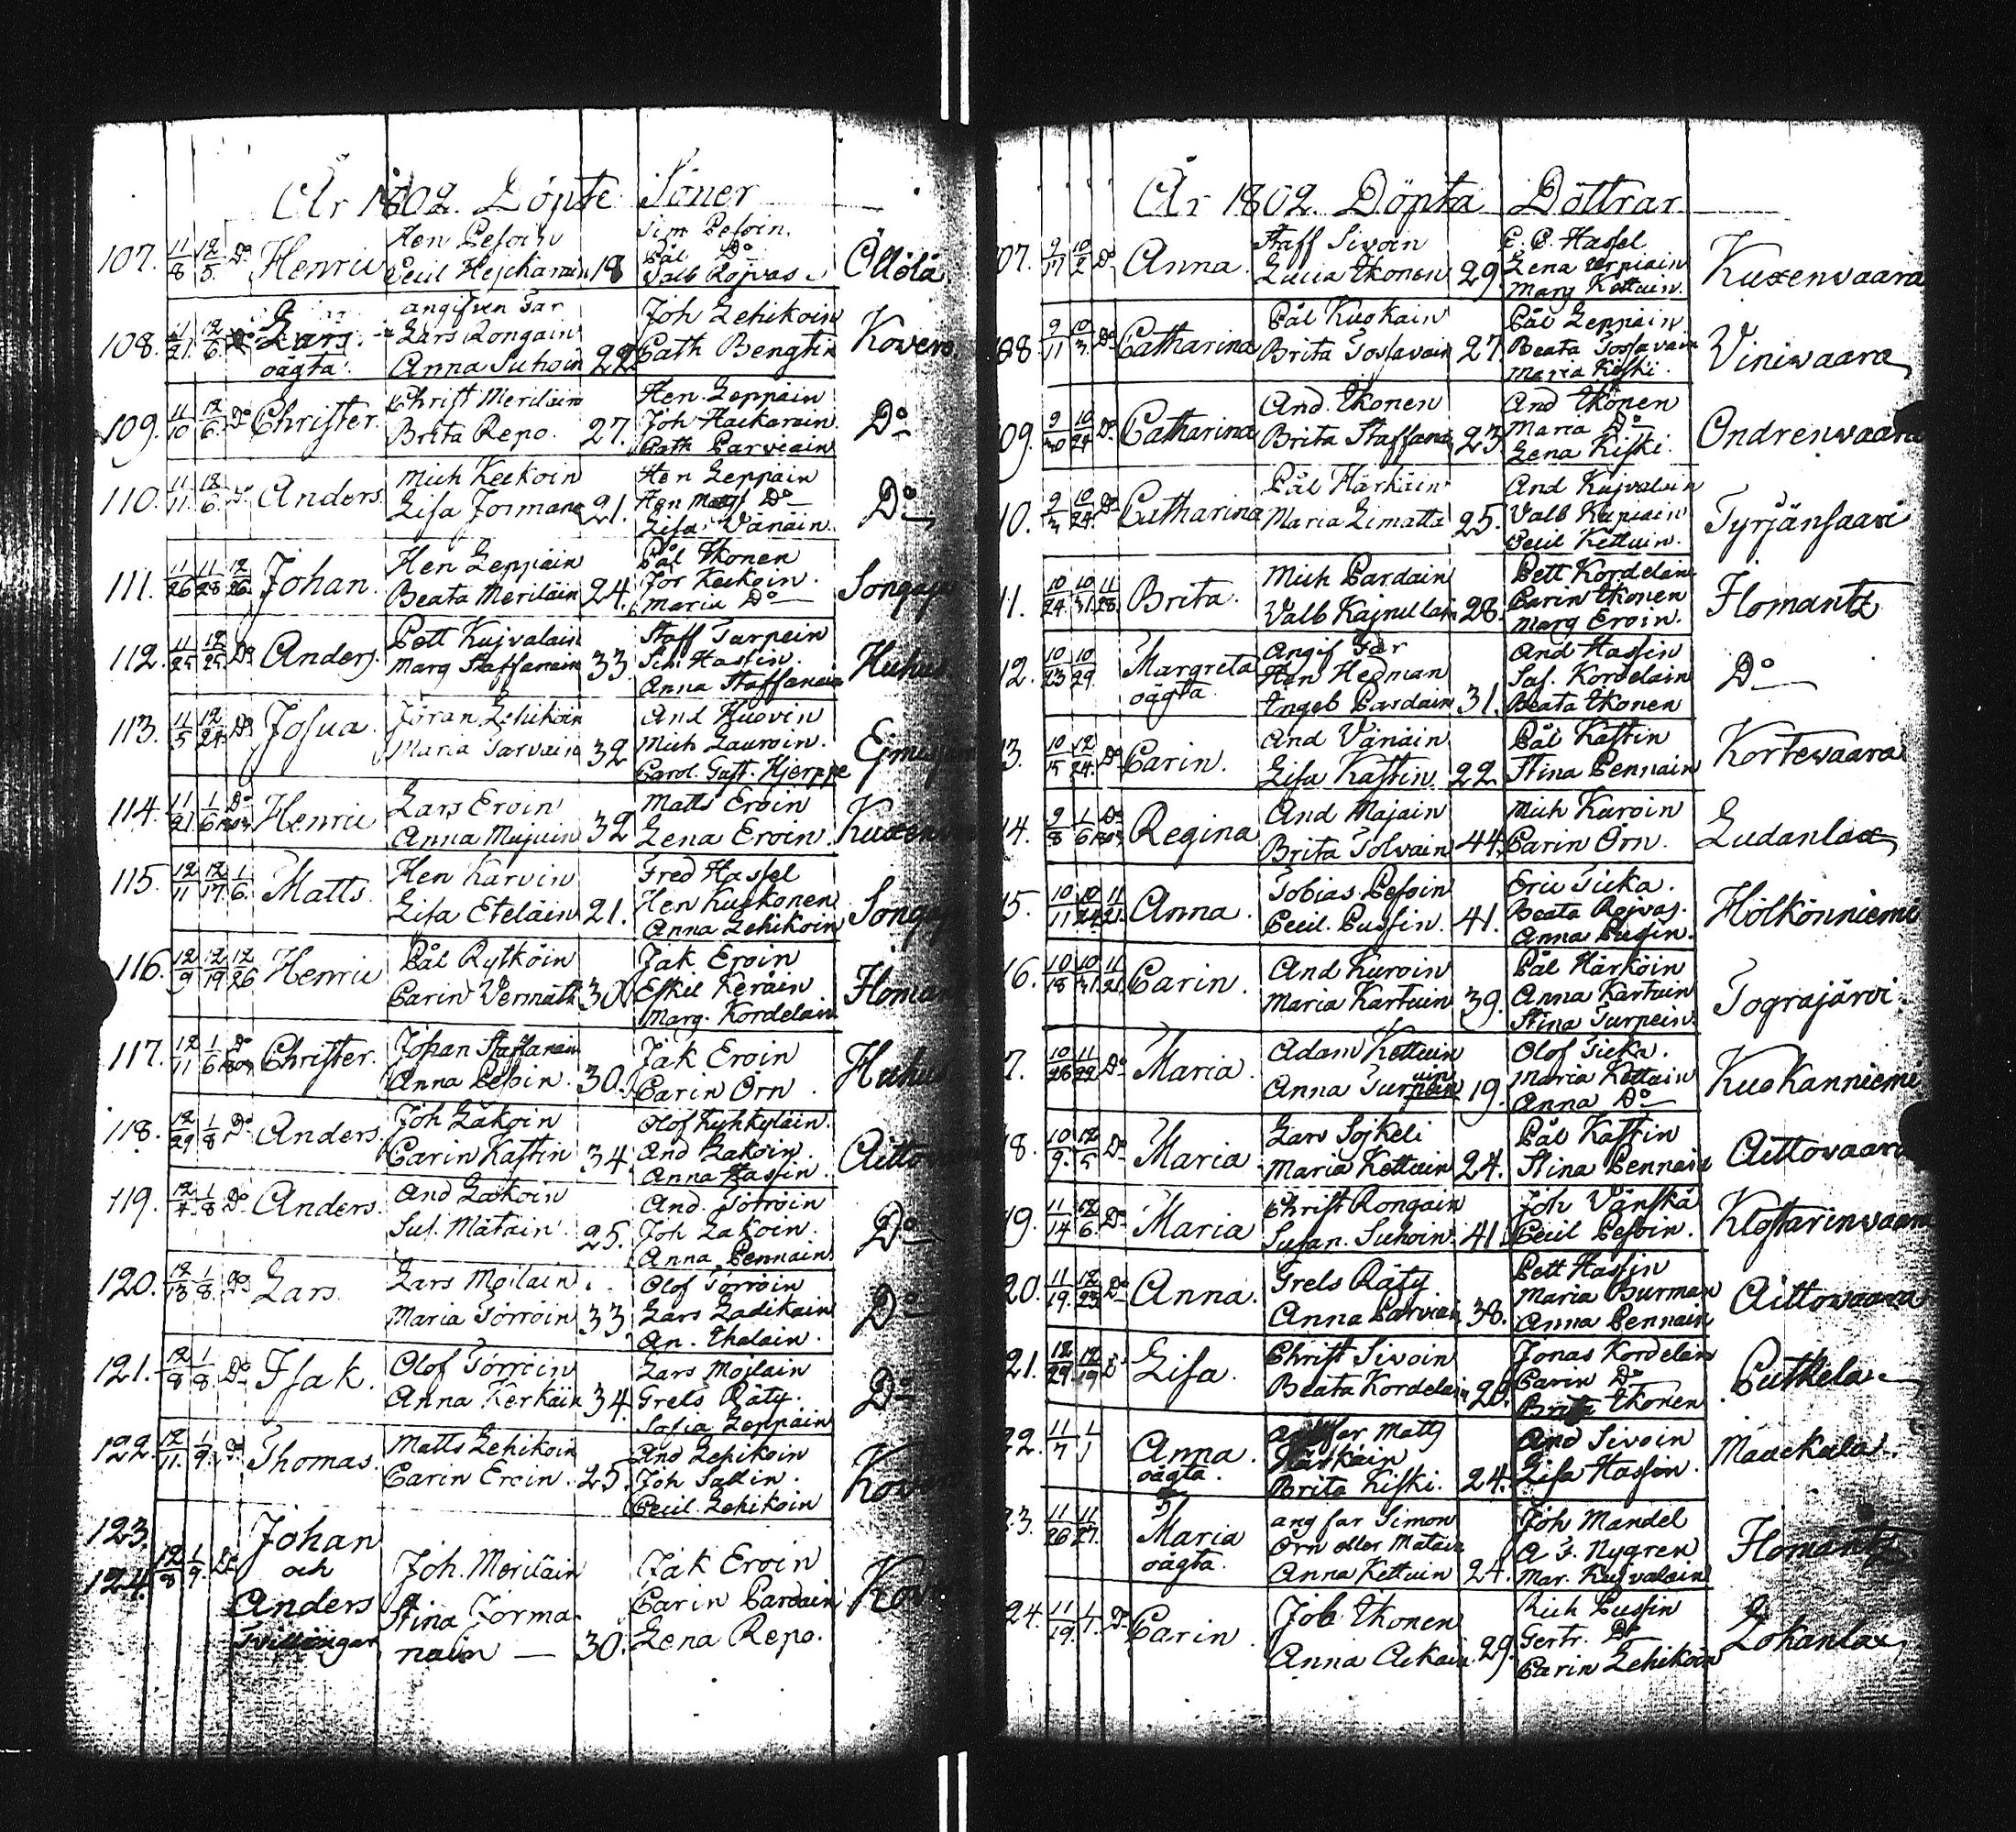 År 1802. Döpte Söner
107. 11/8 12/5 Do Henric Hen Pesoin Cecil Heickarain 18 Sim Pesoin. Pål Do Valb Rojvas Öllölä
108. 11/21 12/6 Do Lars oägta angifven Far Lars Rongain Anna Suhoin 22 Joh Lehikoin Cath Bengtin Kovero
109. 11/10 12/6 Do Christer. Christ Meriläin Brita Repo. 27. Hen. Leppäin Joh Hackarain Cath Parviain Do
110. 11/11 12/6 Do Anders. Mich Keckoin Lisa Jormana 21. Hen Leppäin Hen Matts Do Lisa Vänäin. Do
111. 11/26 11/28 12/26 Johan. Hen Leppäin Beata Meriläin 24. Pål Ikonen Jör Keckoin. Maria Do
112. 11/25 12/25 Do Anders. Pett Kujvalain Marg Staffanain 33. Staff Turpein Sim Hassin. Anna Staffanain Huhus
113. 11/5 12/24 Do Josua. Jöran Lehikoin Maria Tarvain 32 And Kuovin Mich Lauroin. Carol. Gust. Hjerppe
114. 11/21 1/6 Do 1803. Henric Lars Eroin Anna Mujuin 32 Matts Eroin Lena Eroin.
115. 12/11 12/17 1/6. Matts. Hen Karvin Lisa Eteläin 21. Fred Hassel Hen Kuokonen Anna Lehikoin
116. 12/9 12/19 12/26 Henric Pål Rytköin Carin Vermäth 30. Jak Eroin Eskil Keräin Marg. Kordelain
117. 12/11 1/6 Do 1803 Christer. Johan Staffanain Anna Pesoin. 30. Jak Eroin Carin Örn. Huhus
118. 12/29 1/8 Do Anders. Joh Lakoin Carin Kastin 34. Olof Kyhkyläin. And Lakoin. Anna Hassin.
119. 12/4 1/8 Do Anders. And Lakoin Sus. Mätäin 25. And. Törröin Joh Lakoin. Anna Pennain Do
120. 12/13 1/8. Do Lars. Lars Moilain. Maria Törröin 33 Olof Törröin Lars Ladikain An. Ihalain. Do
121. 12/8 1/8. Do Isak. Olof Törröin Anna Kerkäin 34. Lars Mojlain Grels Räty. Sofia Leppäin Do
122. 12/11. 1/9. Do Thomas. Matts Lehikoin Carin Eroin. 25. And Lehikoin Joh Sallin. Cecil. Lehikoin
123. 124. 12/8 1/9. Do Johan och Anders Tvillingar Joh. Meriläin Stina Jormanain — 30. Jak Eroin Carin Pardain Lena Repo.
År 1802. Döpta Döttrar
07. 9/17 10/2 Do Anna. Staff Sivoin Lucia Ikonen 29. C. C. Hassel Lena Terpiain Marg Kettuin. Kuxenvaara
08. 9/11 10/3. Do Catharina Pål Kuokain Brita Tossavain 27. Pål Leppäin. Beata Tossavain Maria Kiski. Viniwaara
09. 9/30 10/24 Do Catharina And. Ikonen Brita Staffana 23. And Ikonen Maria Do Lena Kiski. Ondrenvaara
10. 9/3 10/24. Do Catharina Pål Härkäin Maria Limatta 25. And Kujvalain Valb Kapiain Cecil Kettuin. Tyrjänsaari
11. 10/24 10/31. 11/28 Brita. Mich Pardain Valb Kajnulain 28. Pett Kordelain Carin Ikonen Marg Eroin. Ilomantz
12. 10/23 10/29 Margreta oägta Angif Far Hen Hedman Engeb Pardain 31. And Hassin Sus. Kordelain Beata Ikonen Do
3. 10/15 12/24. Do Carin. And Vänäin Lisa Kastin. 22 Pål Kastin Stina Pennain Kortevaara
14. 9/8 1/6 Do 1803. Regina And Majain Brita Tolvain 44. Mich Kuroin Carin Örn. Ludanlax
5. 10/11 10/24 11/21. Anna. Tobias Pesoin Cecil. Pussin. 41. Eric Ticka. Beata Rojvas. Anna Pusin. Hölkönniemi
6. 10/18 10/31. 11/21. Carin. And Kuroin Maria Kartuin 39. Pål Härköin Anna Kartuin Stina Turpein Tograjärvi
7. 10/26 11/22 Do Maria. Adam Kettuin Anna Turpein 19. Olof Ticka. Maria Kettuin Anna Do Kuokanniemi
8. 10/9. 12/5 Do Maria Lars Sojkeli Maria Kettuin 24. Pål Kastin Stina Pennain Aittovaara
9. 11/14 12/6. Do Maria Christ Rongain Susan. Suhoin 41. Joh Vänskä Cecil Pesoin. Klostarinvaara
20. 11/19. 12/23 Do Anna. Grels Räty Anna Parviain 38. Pett Hassin Maria Burman Anna Pennain Aittovaara
21. 12/29. 12/19 Do Lisa. Christ Sivoin Beata Kordelain 20. Jonas Kordelain Carin Do Brita Ikonen Putkela
22. 11/7 1/1 Anna. oägta. far Matts Härkäin Brita Kiski. 24. And Sivoin Lisa Hassin. Maukula
23. 11/26 11/27. Maria oägta. ang far Simon Örn eller Mätäin Anna Kettuin 24. Joh Mandel A. F. Nygren Mar. Kujvalain Ilomantz
24. 11/19. 1/1. Do Carin. Job Ikonen Anna Ackain. 29. Mich Pussin Gertr. Do Carin Lehikoin Lokanlax